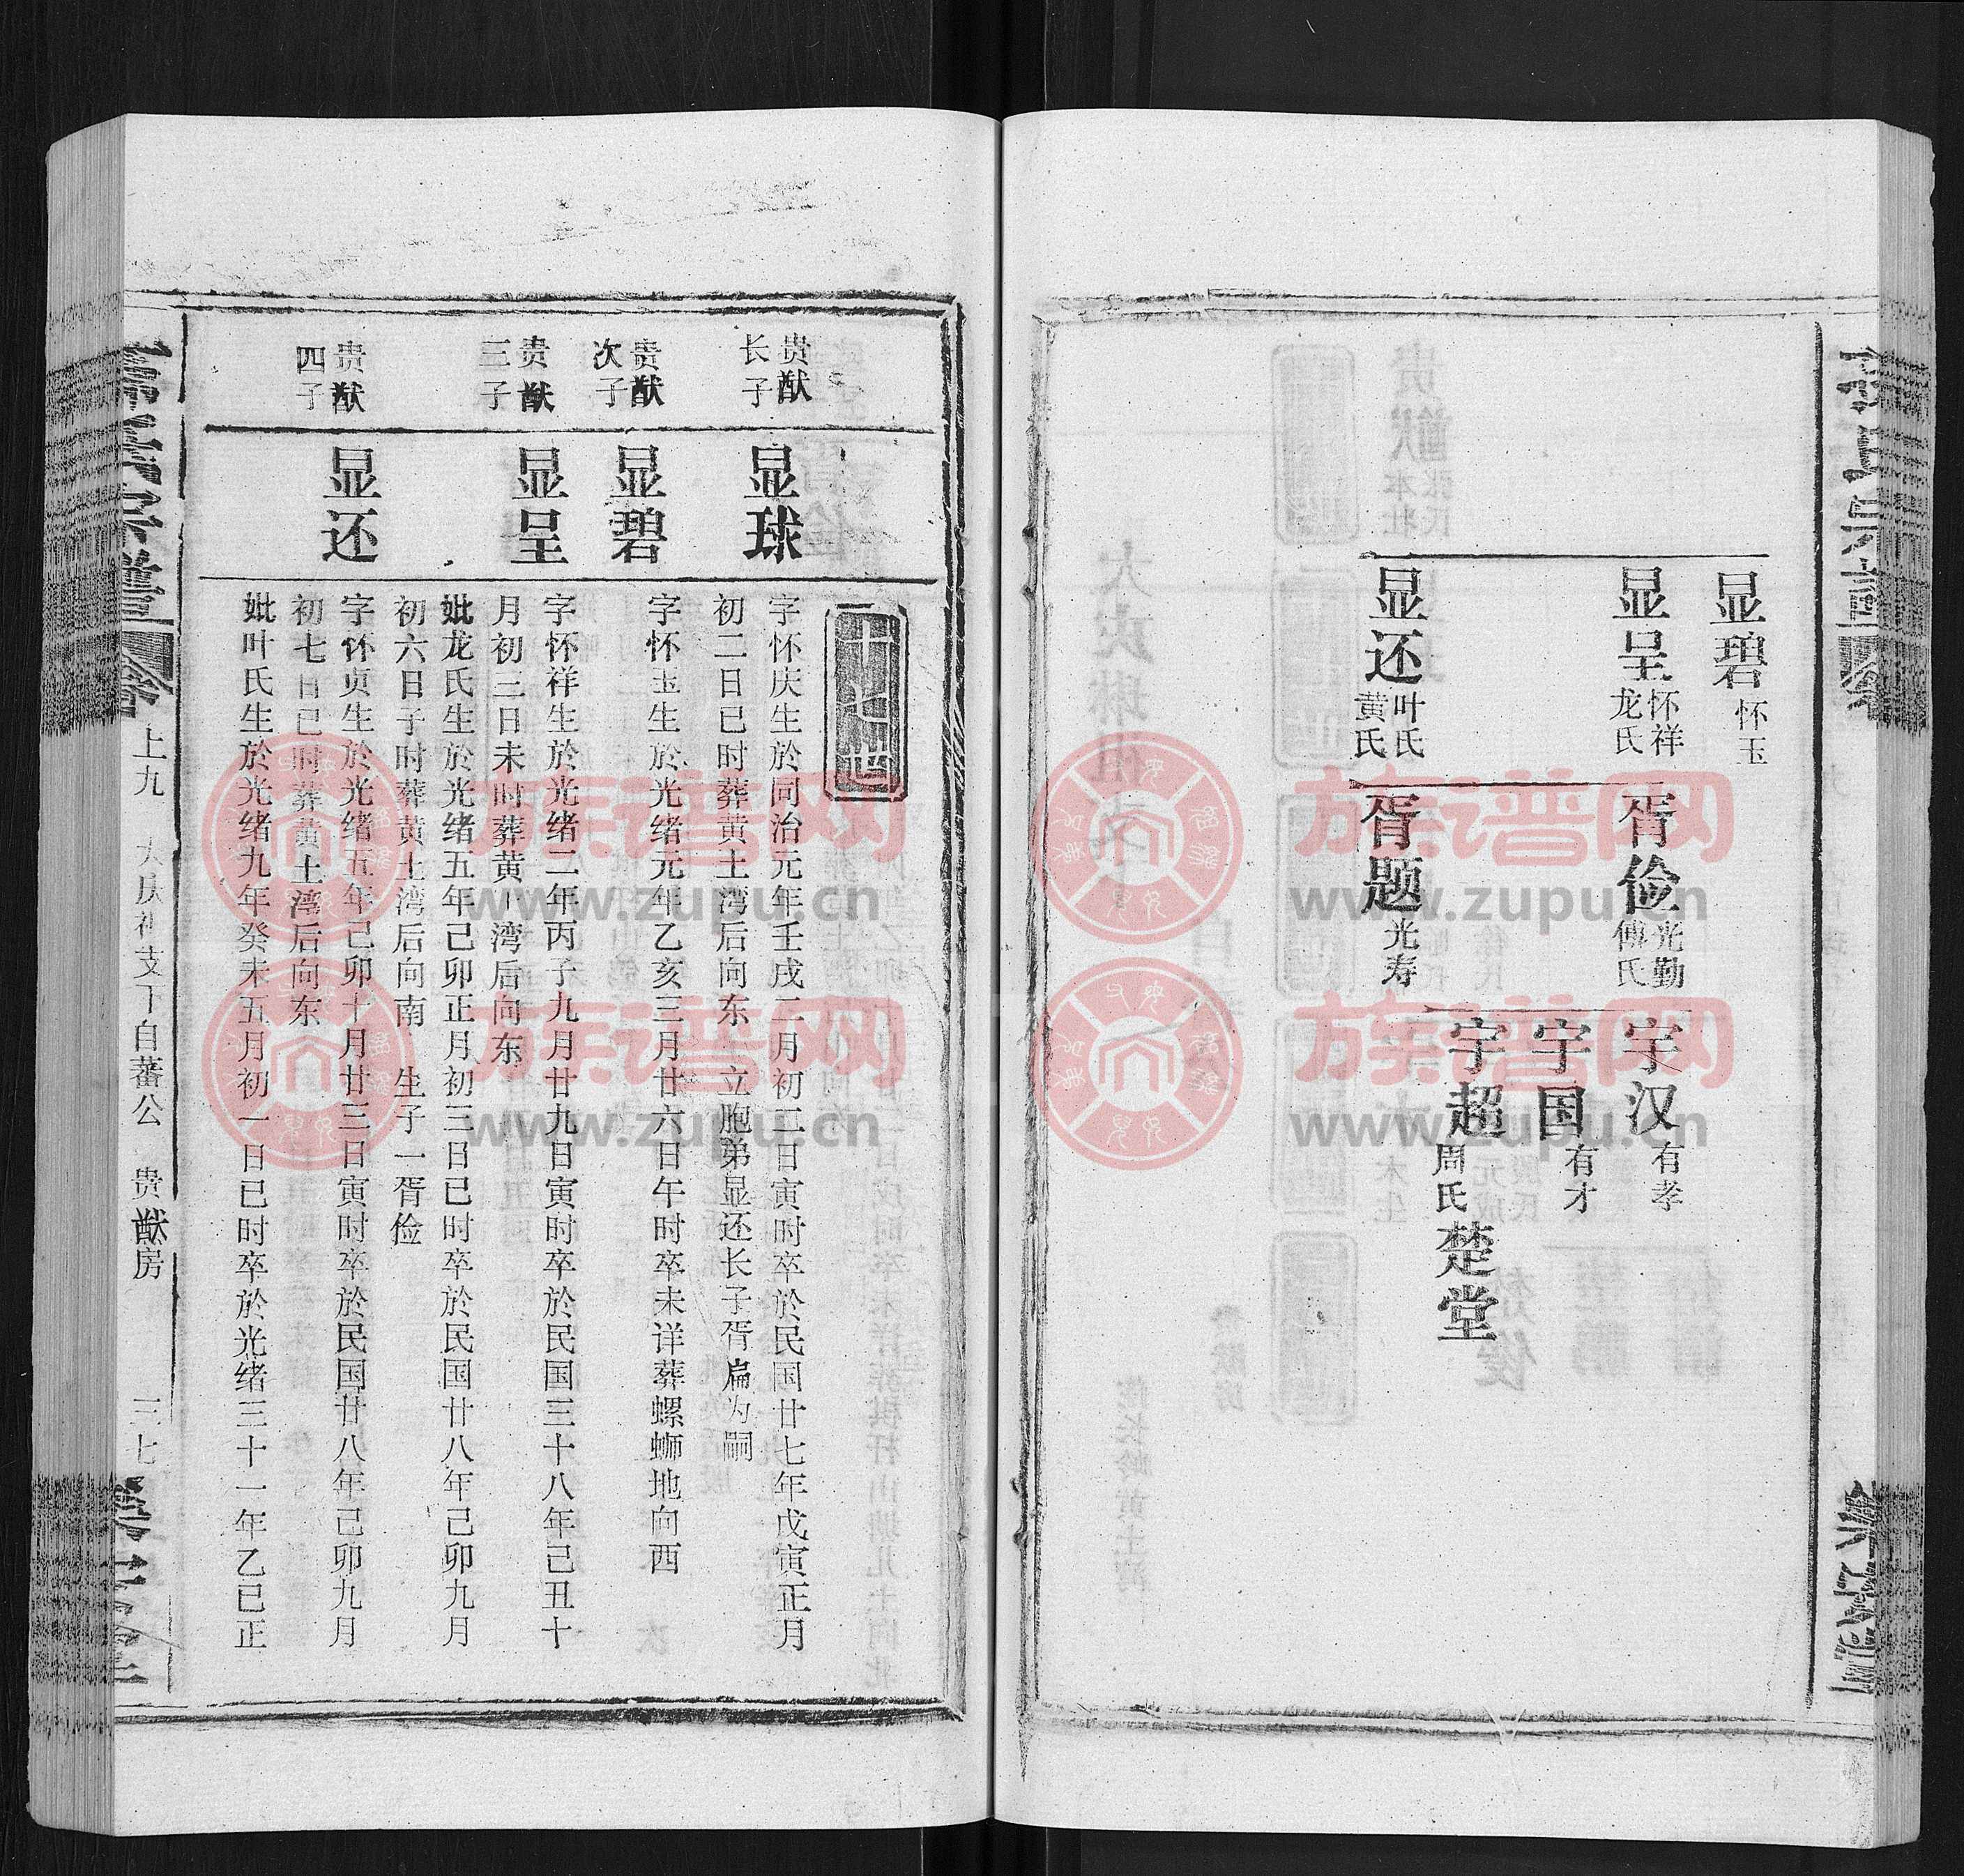 显碧 怀玉
显呈 怀祥 龙氏
显还 叶氏 黄氏
胥俭 光勤 傅氏
胥题 光寿
宇汉 有孝
宇国 有才
宇超 周氏
楚堂
十七世
贵猷长子
显球
字怀庆生於同治元年壬戌二月初二日寅时卒於民国廿七年戊寅正月
初二日巳时葬黄土湾后向东 立胞弟显还长子胥扁为嗣
贵猷次子
显碧
字怀玉生於光绪元年乙亥三月廿六日午时卒未详葬螺蛳地向西
贵猷三子
显呈
字怀祥生於光绪二年丙子九月廿九日寅时卒於民国三十八年己丑十
月初三日未时葬黄土湾后向东
妣龙氏生於光绪五年己卯正月初三日巳时卒於民国廿八年己卯九月
初六日子时葬黄土湾后向南 生子一胥俭
贵猷四子
显还
字怀贞生於光绪五年己卯十月廿三日寅时卒於民国廿八年己卯九月
初七日巳时葬黄土湾后向东
妣叶氏生於光绪九年癸未五月初一日巳时卒於光绪三十一年乙巳正
上九 支下自蕃公 贵猷房 三七
族谱网
www.zupu.cn
族谱网
www.zupu.cn
族谱网
www.zupu.cn
族谱网
www.zupu.cn